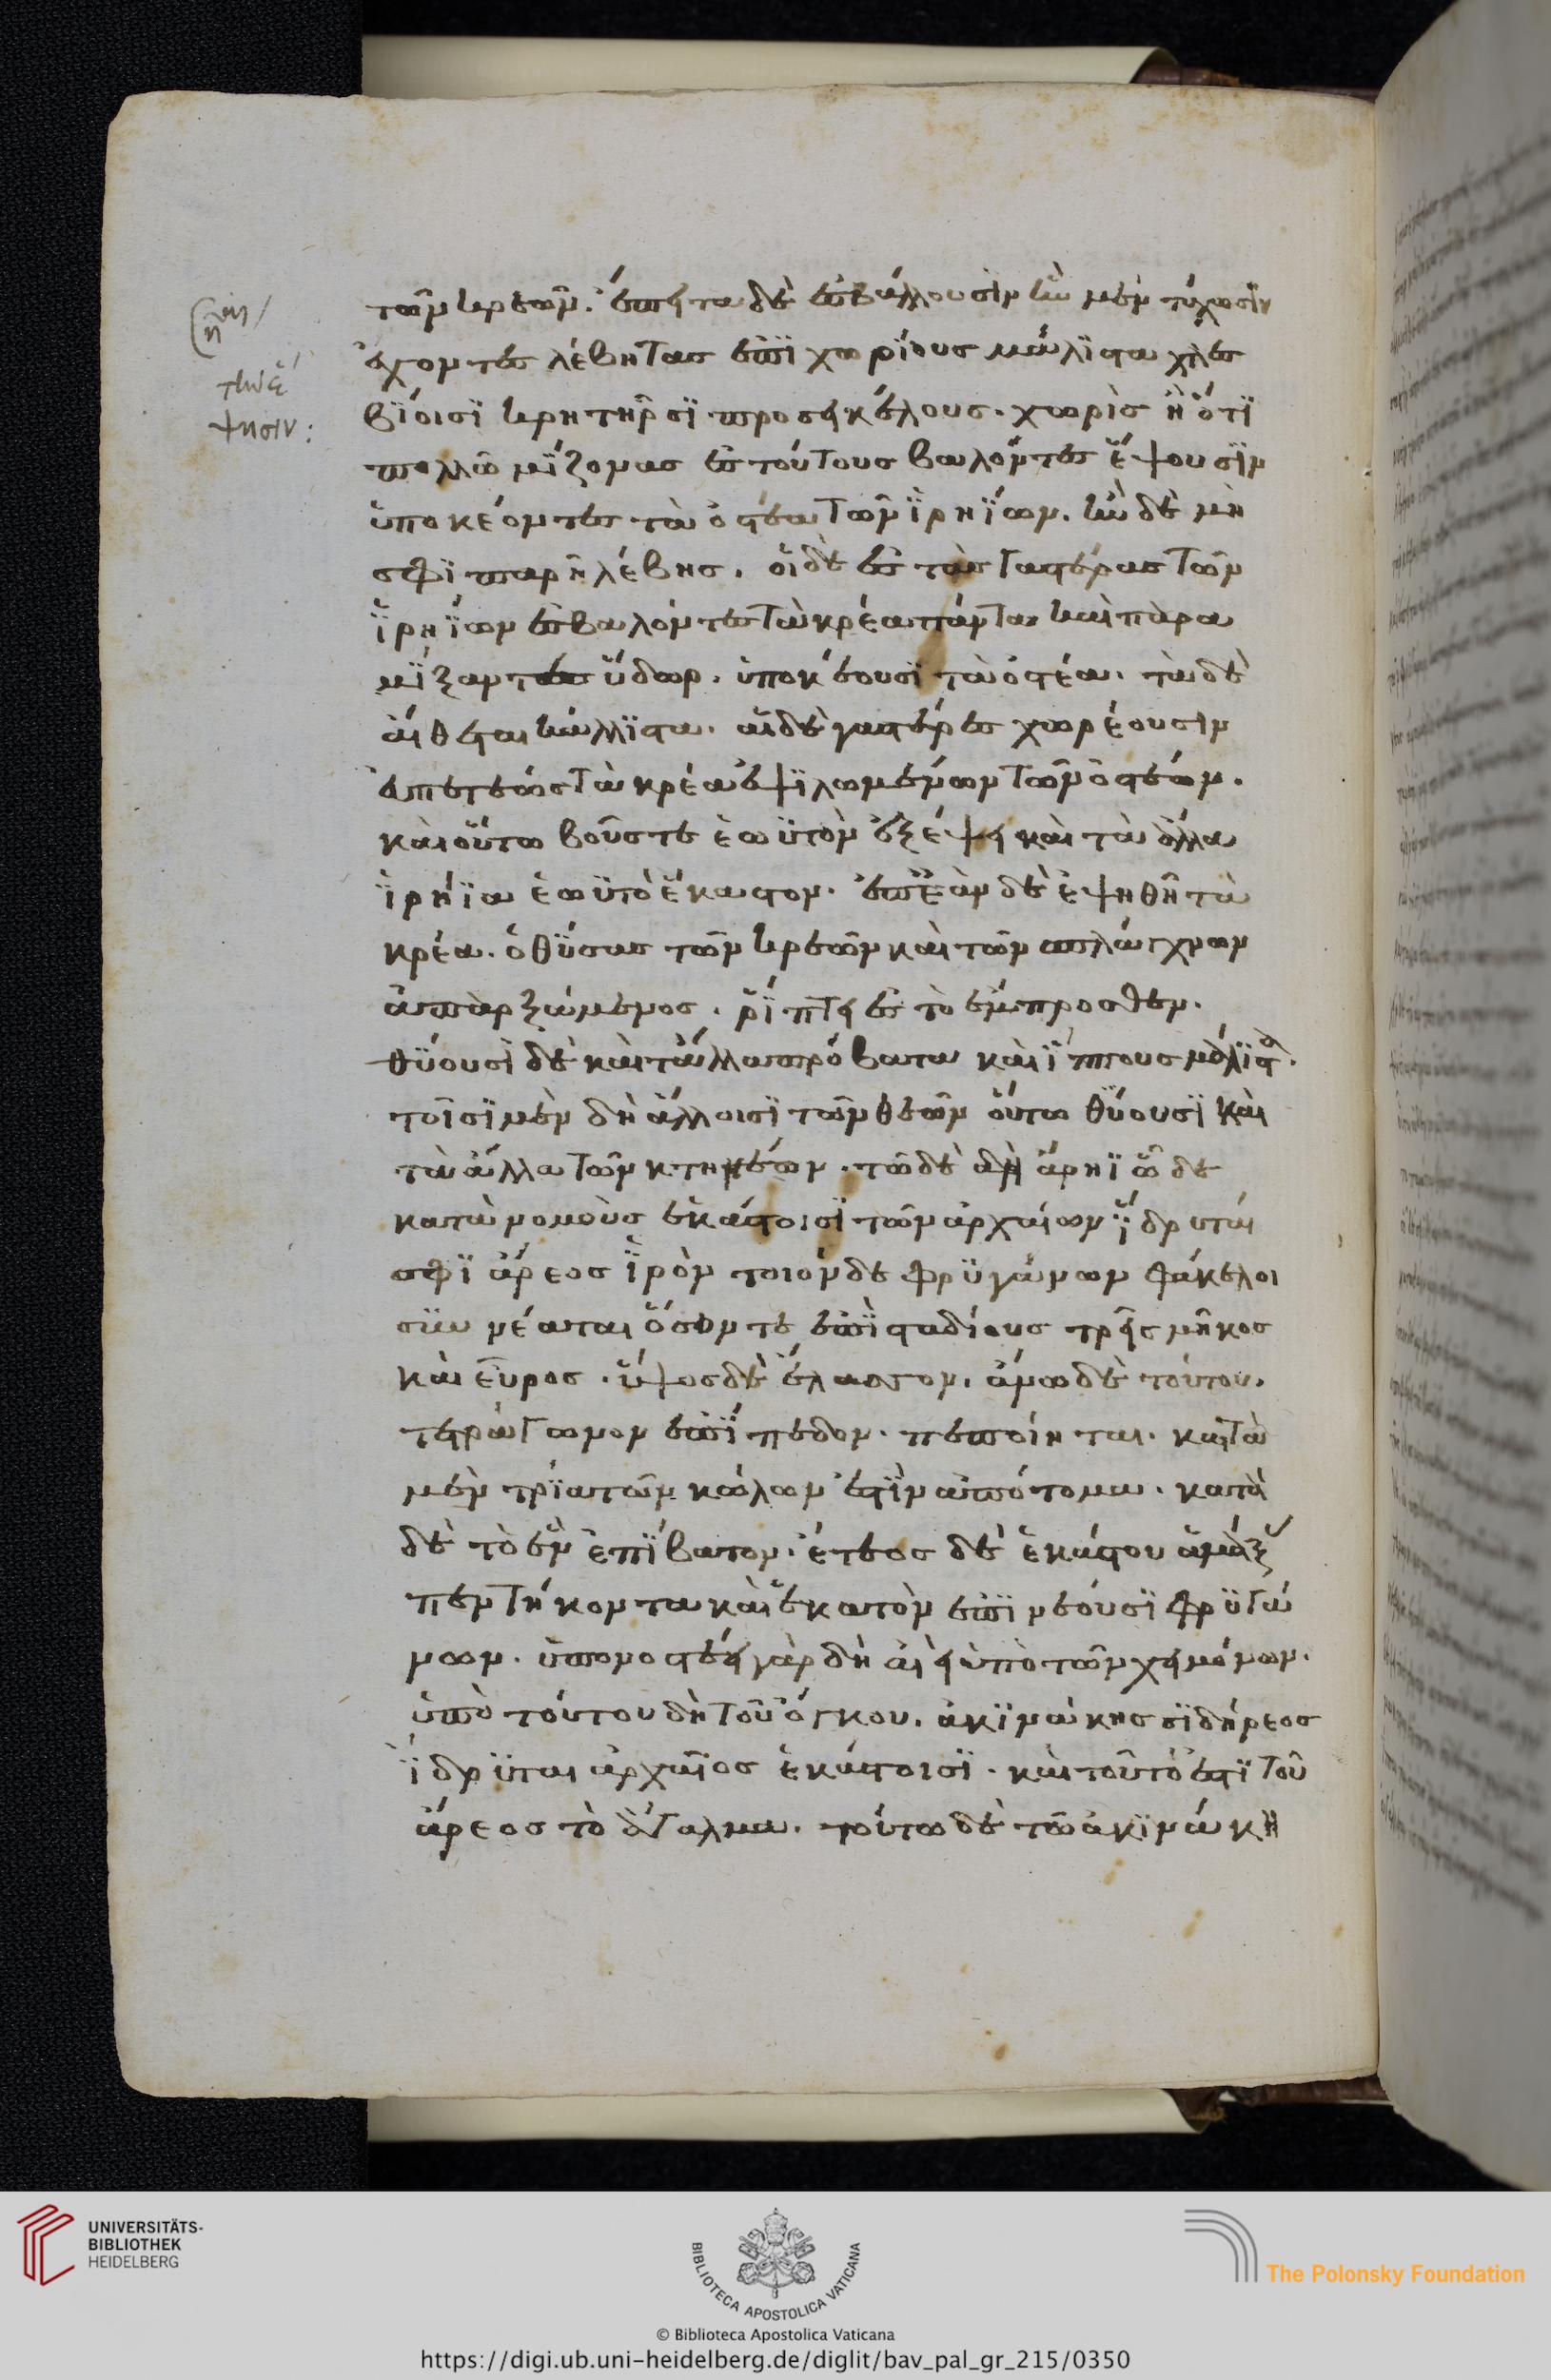 τῶν κρεῶν. ἔπειτα δὲ ἐσβάλλουσϊν ἢν μὲν τύχωσϊν
ἔχοντες λέβητας ἐπϊχωρίους μάλϊστα
βίοισϊ κρητῆρσϊ προσεικέλους. χωρὶς ἢ ὅτϊ
πολλῶ μείζονας ἐς τούτους βαλόντες ἕψουσϊν
ὑποκέοντες τὰ ὀστέα τῶν ϊρηίων. ἢν δὲ μὴ
σφϊ παρῆ λέβης. οἱ δὲ ἐς τὰς γαστέρας τῶν
ϊρηίων ἐσβαλόντες τὰ κρέα πάντα καὶ παρα
μίξαντες ὕδωρ. ὑποκέουσϊ τὰ ὀστέα. τὰ δὲ
αἴθεται κάλλϊστα. αἱ δὲ γαστέρες χωρέουσϊν
εὐπετέως τὰ κρέα ἐψϊλωμένων τῶν ὀστέων.
καὶ οὕτω βοῦς τε ἑωϋτὸν ἐξέψει καὶ τὰ ἄλλα
ϊρήϊα ἑωϋτὸ ἕκαστον. ἐπεὰν δὲ ἑψηθῆ τὰ
κρέα. ὁ θύσας τῶν κρεῶν καὶ τῶν σπλάγχνων
ἀπαρξάμενος. ῥίπτει ἐς τὸ ἔμπροσθεν.
θύουσϊ δὲ καὶ τἄλλα πρόβατα καὶ ἵππους μάλιστα.
τοῖσϊ μὲν δὴ ἄλλοισϊ τῶν θεῶν οὕτω θύουσϊ καὶ
τὰ ἄλλα τῶν κτηνέων. τῶ δὲ δὴ ἄρηϊ ὧδε
κατὰ νομοὺς ἑκάστοισϊ τῶν ἀρχαίων ἵδρυται
σφϊ ἄρεος ἱρὸν τοιόνδε φρϋγάνων φάκελοι
συννέαται ὅσον τε ἐπὶ σταδίους τρεῖς μῆκος
καὶ εὖρος. ὕψος δὲ ἔλασσον. ἄνω δὲ τούτου.
τετράγωνον ἐπίπεδον. πεποίηται. καὶ τὰ
μὲν τρία τῶν κώλων ἐστὶν ἀπότομα. κατὰ
δὲ τὸ ἓν ἐπίβατον. ἔτεος δὲ ἑκάστου ἁμάξ
πεντήκοντα καὶ ἑκατὸν ἐπινέουσϊ φρϋγά
νων. ὑπονοστέει γὰρ δὴ αἰεὶ ὑπὸ τῶν χειμώνων.
ὑπὸ τούτου δὴ τοῦ ὄγκου. ἀκϊνάκης σϊδήρεος
ἵδρϋται ἀρχαῖος ἑκάστοισϊ. καὶ τοῦτό ἐστϊ τοῦ
ἄρεος τὸ ἄγαλμα. τούτω δὲ τῶ ἀκϊνάκη
UNIVERSITÄTS-
BIBLIOTHEK
HEIDELBERG
BIBLIOTECA APOSTOLICA VATICANA
The Polonsky Foundation
© Biblioteca Apostolica Vaticana
https://digi.ub.uni-heidelberg.de/diglit/bav_pal_gr_215/0350